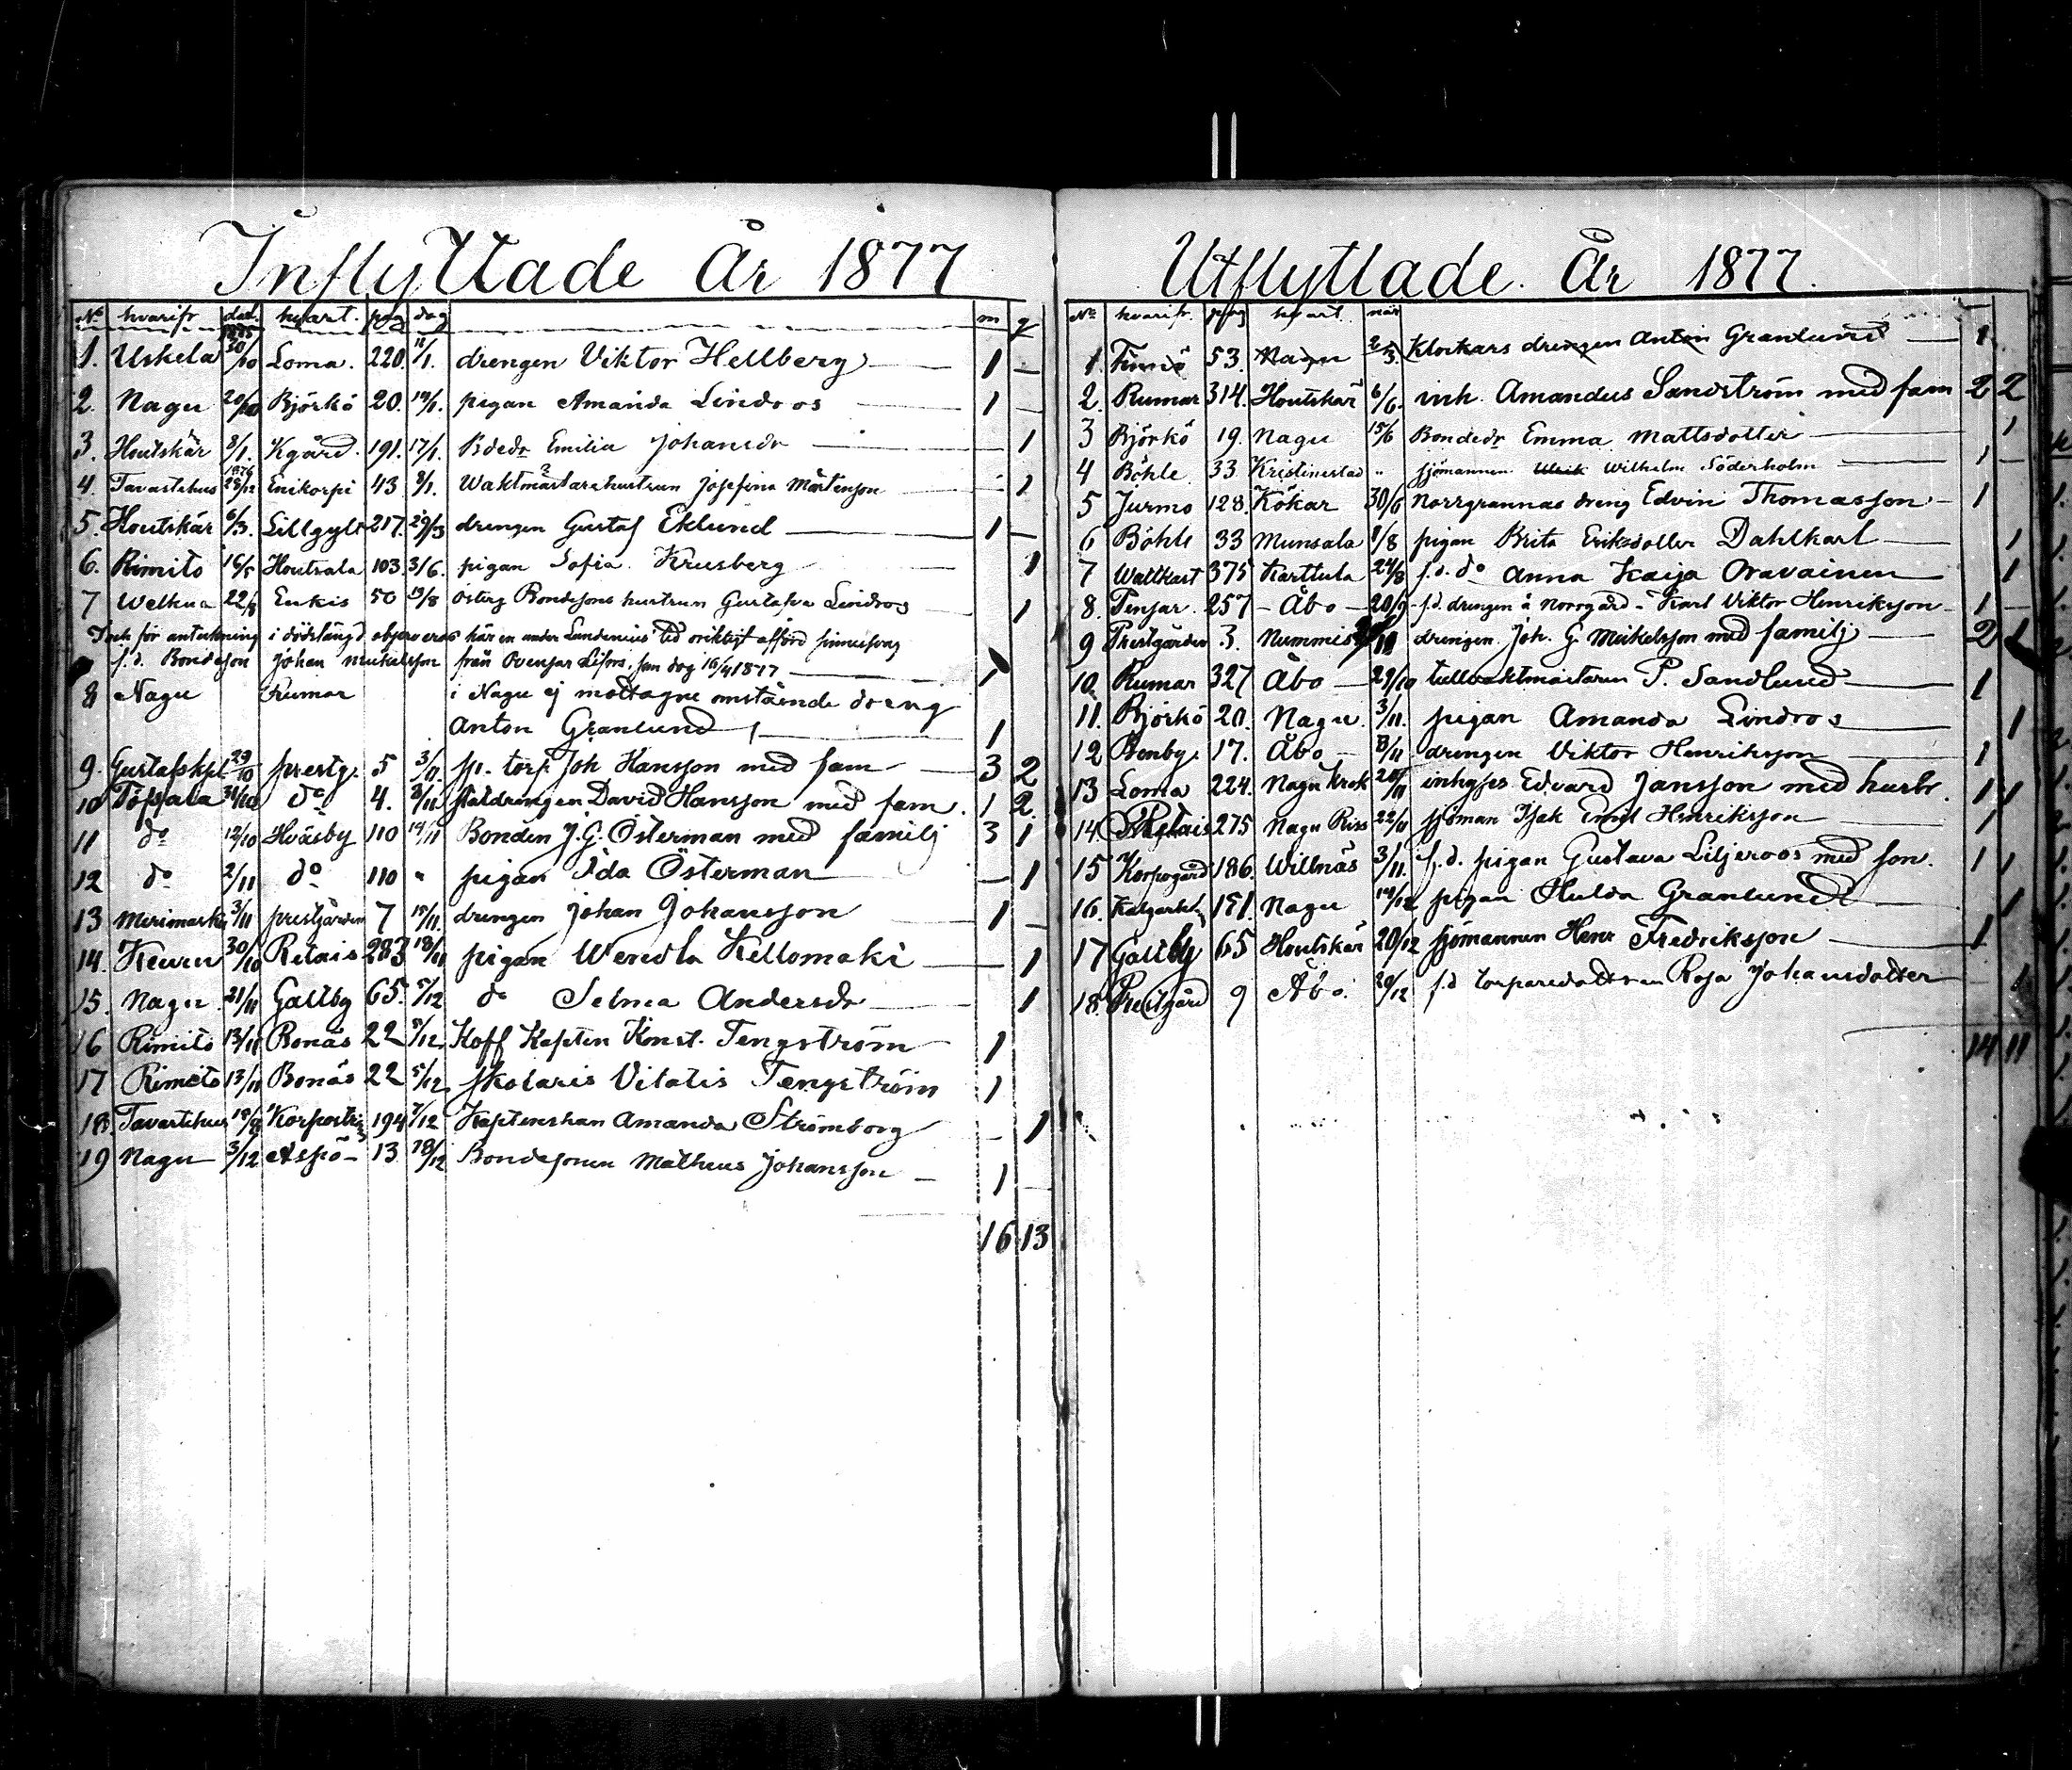 Inflyttade År 1877
No hvarifr dat. hvart. pag dag m q
1875
1. Uskela 30/10 Loma. 220. 11/1. drengen Viktor Hellberg 1 —
2. Nagu 20/10 Björkö 20. 14/1. pigan Amanda Lindroos 1
3. Houtskär 8/1. Kgård. 191. 17/1. Bdedr Emilia Johansdr 1
1876
4. Tavastehus 28/12 Enikorpi 43 8/1. Waktmästarehustrun Josefina Mårtenson 1
5. Houtskär 6/3. Lillgylt 217. 29/03 drengen Gustaf Eklund 1 —
6. Rimito 16/5 Houtsala 103. 3/6. pigan Sofia Krusberg 1
7 Welkua 22/8 Enkis 50 19/8 österg Bondesons hustrun Gustafva Lindroos 1
för anteckning i dödslängd observeras här en under Lundenius tid oriktigt afförd
f.d. Bondeson Johan Mickelsson från Ovensar Lifors, som dog 16/4 1877 1
8 Nagu Rumar i Nagu ej mottagne omstående dreng
Anton Granlund 1
9. Gustafskpl 29/10 prestg. 5 3/11. torp Joh Hansson med fam 3 2
10 Töfsala 31/10 do 4. 3/11 statdrengen David Hansson med fam. 1 2.
11 do 12/10 Hväsby 110 14/11 Bonden J.G. Österman med familj 3 1
12 do 2/11 do 110 " pigan Ida Österman — 1
13 Merimasku 3/11 prestgården 7 15/11. drengen Johan Johansson 1 —
14. Keuru 30/10 Retais 283 18/11 pigan Wendla Kellomäki — 1
15. Nagu 21/11 Galtby 65. 5/12 do Selma Andersdr 1
16 Rimito 13/11 Bonäs 22 5/12 Koff Kapten Konst. Tengström 1
17 Rimito 13/11 Bonäs 22 5/12 skolaris Vitalis Tengström 1
18. Tavastehus 18/8 Korpoström 194 7/12 Kaptenskan Amanda Strömborg — 1
19 Nagu 3/12 Aspö 13 18/12 Bondesonen Matheus Johansson 1 —
16 13
Utflyttade. År 1877.
No hvarifr. pag hvart. när
1. Finnö 53. Nagu 2/3. Klockars drengen Anton Granlund 1
2. Rumar 314. Houtskär 6/6. inh. Amandus Sandström med fam 2 2
3 Björkö 19. Nagu 15/6 Bondedr Emma Mattsdotter 1
4 Böhle 33 Kristinestad " sjömannen Ulrik Wilhelm Söderholm 1 —
5 Jurmo 128. Kökar 30/6 Norrgrannas dreng Edvin Thomasson 1
6 Böhle 33 Munsala 8/8 pigan Brita Eriksdotter Dahlkarl 1
7 Wattkast 375 Karttula 24/8 f.d. do Anna Kaija Oravainen 1
8. Pensar. 257 Åbo 20/9 f.d. drengen å Norrgård Karl Viktor Henriksson 1 —
9 Prestgården 3. Nummis drengen Joh. G. Mickelsson med familj 2 1
10. Rumar 327 Åbo 29/10 tullvaktmästaren P. Sandlund 1
11. Björkö 20. Nagu. 3/11. pigan Amanda Lindroos 1
12 Benby. 17. Åbo 8/11 drengen Viktor Henriksson 1
13 Loma 224. Nagu Krok 20/11 inhyses Edvard Jansson med hustr. 1 1
14. Retais 275 Nagu Riss 22/11 sjöman Isak Emil Henriksson 1
15 Korpogård 186. Willnäs 3/11. f.d. pigan Gustava Liljeroos med son. 1 1
16. 191. Nagu 14/12 pigan Hulda Granlund 1
17 Galtby 65 Houtskär 20/12 sjömannen Henr Fredriksson 1
18. Prestgård 9 Åbo. 29/12 f.d torparedottren Rosa Johansdotter 1
14 11